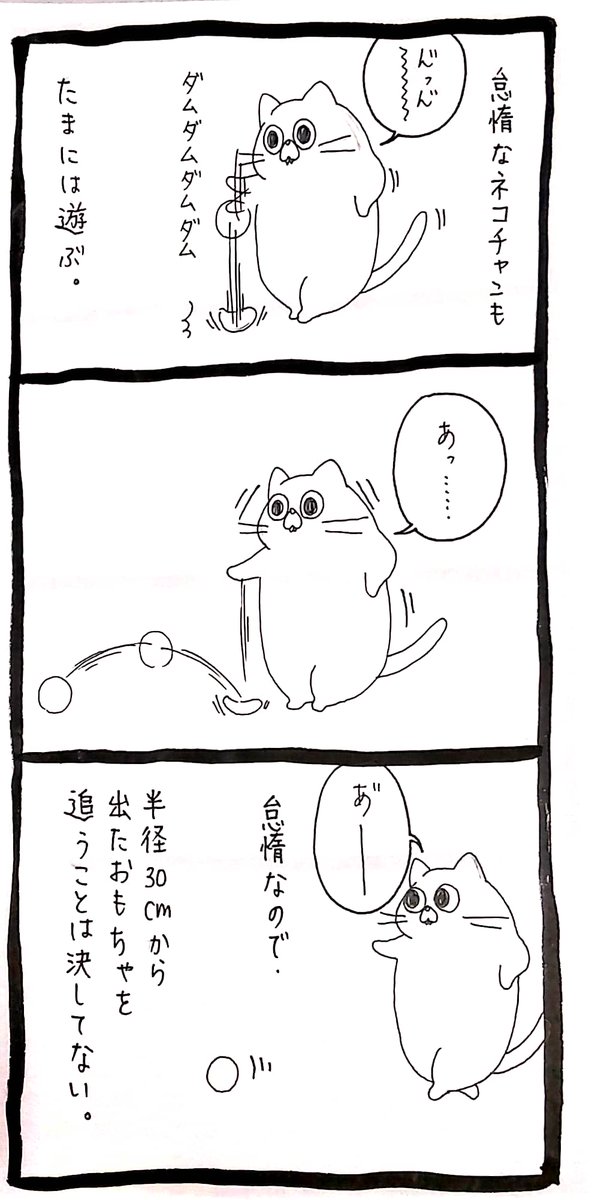 怠惰なネコチャンも
んっん゛
ダムダムダムダム
たまには遊ぶ。
あっ……
あ゛ー
怠惰なので、
半径30cmから
出たおもちゃを
追うことは決してない。